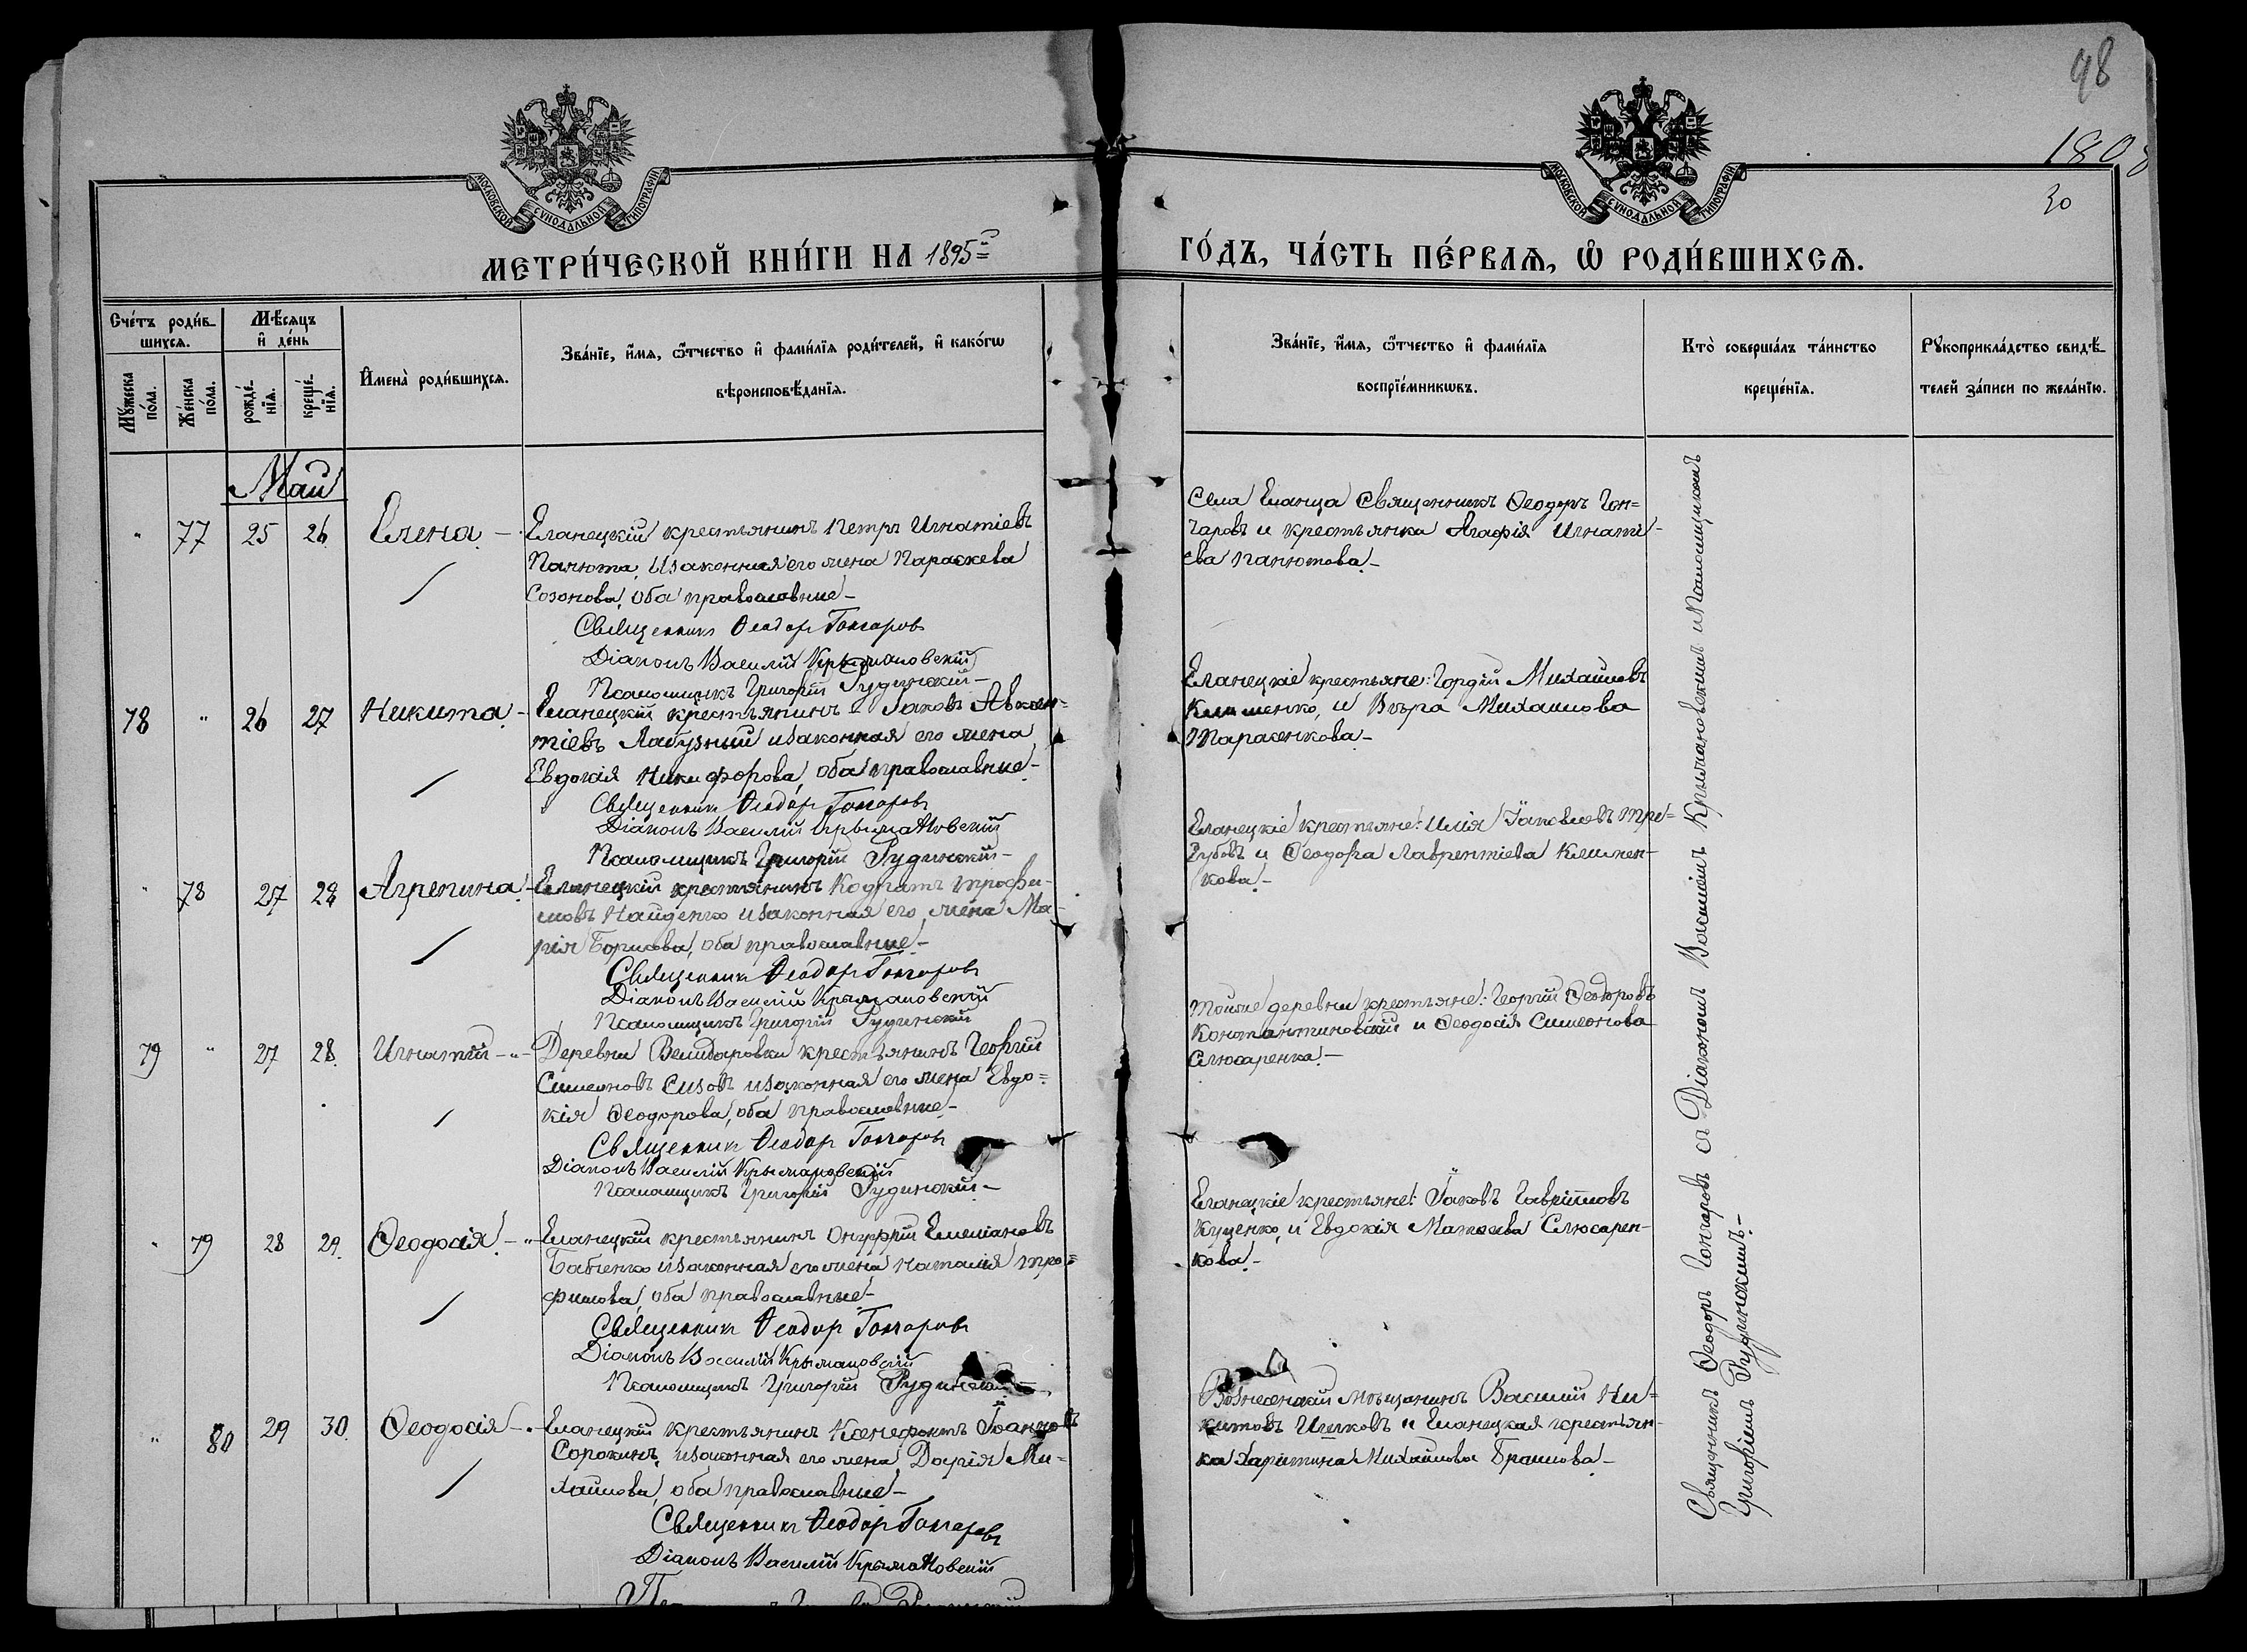 98
1808
30
МОСКОВСКОЙ СѴНОДАЛЬНОЙ ТИПОГРАФІИ
МОСКОВСКОЙ СѴНОДАЛЬНОЙ ТИПОГРАФІИ
МЕТРИ́ЧЕСКОЙ КНИ́ГИ НА 1895
ГО́ДЪ, ЧА́СТЬ ПЕ́РВАѦ, Ѡ РОДИ́ВШИХСѦ.
Сче́тъ роди́в-
шихсѧ.
Мѣ́сѧцъ
и҆ де́нь
Мꙋ́жеска
по́ла.
Же́нска
по́ла.
рожде́-
нїѧ.
креще́-
нїѧ.
И҆мена̀ роди́вшихсѧ.
Зва́нїе, и҆́мѧ, ѻ҆́тчество и҆ фами́лїѧ роди́телей, и҆ како́гѡ
вѣроисповѣ́данїѧ.
Зва́нїе, и҆́мѧ, ѻ҆́тчество и҆ фами́лїѧ
воспрїе́мникѡвъ.
Кто̀ соверша́лъ та́инство
креще́нїѧ.
Рꙋкоприкла́дство свидѣ́-
телей за́писи по жела́нїю.
Май
" 77 25 26 Елена -
Еланецкій крестьянинъ Петръ Игнатіевъ
Панюта, и законная его жена Параскева
Созонова, оба православные -
Священникъ Ѳеодоръ Гончаровъ
Діаконъ Василій Крыжановскій
Псаломщикъ Григорій Рудинскій -
Села Еланца Священникъ Ѳеодоръ Гон=
чаровъ и крестьянка Агафія Игнатi-
ева Панютова. -
78 " 26 27 Никита -
Еланецкій крестьянинъ Іаковъ Авксен=
тіевъ Лабузный и законная его жена
Евдокія Никифорова, оба православные -
Священникъ Ѳеодоръ Гончаровъ
Діаконъ Василій Крыжановскій
Псаломщикъ Григорій Рудинскій -
Еланецкіе крестьяне: Гордій Михайловъ
Клименко, и Вѣра Михайлова
Тарасенкова. -
" 78 27 28 Агрепина
Еланецкій крестьянинъ Кодратъ Трофи-
мовъ Найденко и законная его жена Ма-
рія Борисова, оба православные -
Священникъ Ѳеодоръ Гончаровъ
Діаконъ Василій Крыжановскій
Псаломщикъ Григорій Рудинскій
Еланецкіе крестьяне: Илія Іаковлевъ Три=
зубовъ и Ѳеодора Лаврентіева Климен-
кова. -
79 " 27 28 Игнатій - " -
Деревни Велидаровки крестьянинъ Георгій
Симеоновъ Сизовъ и законная его жена Евдо=
кія Ѳеодорова, оба православные -
Священникъ Ѳеодоръ Гончаровъ
Діаконъ Василій Крыжановскій
Псаломщикъ Григорій Рудинскій -
Тойже деревни крестьяне: Георгій Ѳеодоровъ
Константиновскій и Ѳеодосія Симеонова
Слюсаренка. -
" 79 28 29 Ѳеодосія - "
Еланецкій крестьянинъ Онуфрій Емеліановъ
Бабенко и законная его жена Наталія Тро=
фимова, оба православные -
Священникъ Ѳеодоръ Гончаровъ
Діаконъ Василій Крыжановскій
Псаломщикъ Григорій Рудинскій
Еланецкіе крестьяне: Іаковъ Гавріиловъ
Куценко, и Евдокія Матѳеева Слюсарен-
кова. -
" 80 29 30 Ѳеодосія -
Еланецкій крестьянинъ Ксенофонтъ Іоанновъ
Сорокинъ, и законная его жена Дарія Ми-
хайлова, оба православные -
Священникъ Ѳеодоръ Гончаровъ
Діаконъ Василій Крыжановскій
Вознесенскій мѣщанинъ Василій Ни=
китовъ и Еланецкая крестьян-
ка Харитина Михайлова -
Священникъ Ѳеодоръ Гончаровъ съ Діакономъ Василіемъ Крыжановскимъ и Псаломщикомъ
Григоріемъ Рудинскимъ. -